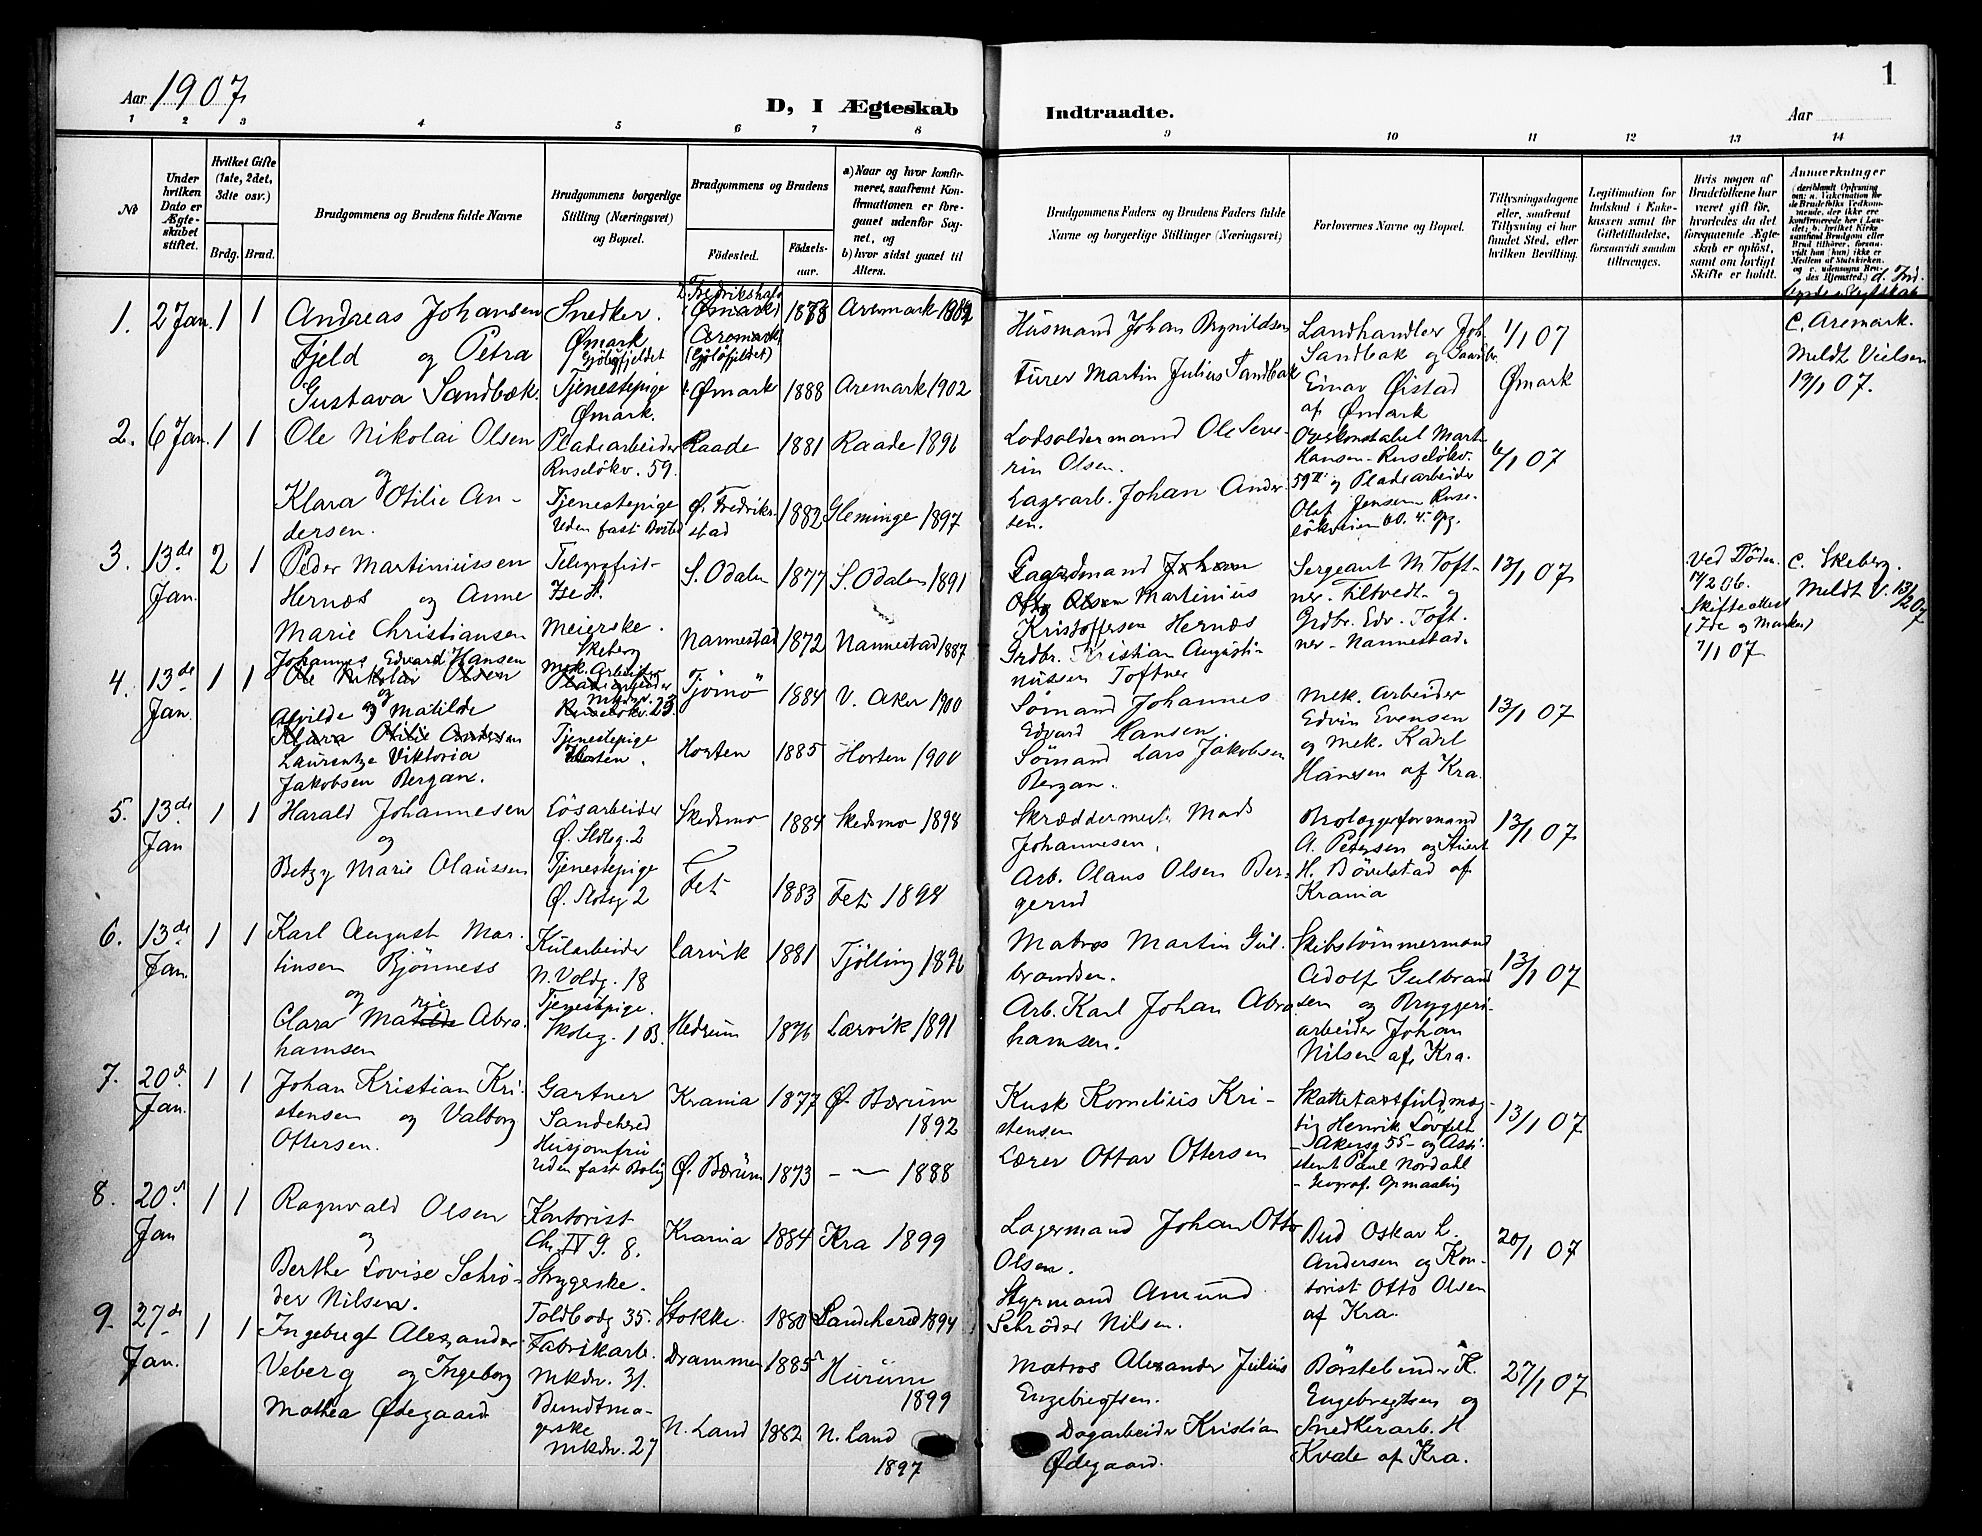 Aar 1907
D, I Ægteskab
1 2 3 4 5 6 7 8
No
Under hvilken Dato er Ægteskabet stiftet.
Hvilket Gifte (1ste, 2det, 3die osv.)
Brdg. Brud.
Brudgommens og Brudens fulde Navne
Brudgommens borgerlige Stilling (Næringsvei) og Bopæl.
Brudgommens og Brudens
Fødested. Fødselsaar.
a) Naar og hvor konfirmeret, saafremt Konfirmationen er foregaaet udenfor Sognet, og
b) hvor sidst gaaet til Alters.
1. 2 Jan. 1 1
Andreas Johansen
Fjeld og Petra
Gustava Sandbæk.
Snedker.
Ømark
Tjenestepige
Ømark.
Fredrikshald
Ømark 1888
Aremark
Aremark 1902
2. 6 Jan. 1 1
Ole Nikolai Olsen
og
Klara Otilie An-
dersen.
Pladearbeider
Ruseløkv. 59.
Tjenestepige
Uden fast Bosted
Raade 1881 Raade 1896
Ø. Fredrik-
stad 1882 Gleminge 1897
3. 13de Jan. 2 1
Peder Martiniussen
Hernæs og Anne
Marie Christiansen
Telegrafist-
Meierske.
Skeberg
S. Odalen 1877 S. Odalen 1891
Nannestad 1872 Nannestad 1887
4. 13de Jan. 1 1
Johannes Edvard Hansen
Ole Nikolai Olsen
og
Alvilde Matilde
Klara Otilie Andersen
Laurentze Viktoria
Jakobsen Bergan.
Mek. Arbeider
Pladearbeider
Ruseløkv. 23.
Tjenestepige
Horten.
Tjømø 1884 V. Aker 1900
Horten 1885 Horten 1900
5. 13de Jan 1 1
Harald Johannesen
og
Betzy Marie Olaussen
Løsarbeider
Ø. Slotsg. 2
Tjenestepige
Ø. Slotsg 2
Skedsmo 1884 Skedsmo 1898
Fet 1883 Fet 1898
6. 13de Jan. 1 1
Karl August Mar-
tinsen Bjønness
og
Clara Marie Abra
hamsen
Kularbeider
N. Voldg. 18
Tjenestepige.
Skoleg. 1 B.
Larvik 1881 Tjølling 1896
Hedrum 1876 Larvik 1891
7. 20d Jan. 1 1
Johan Kristian Kri-
stensen og Valborg
Ottersen.
Gartner
Sandehered
Husjomfru
Uden fast Bolig
Krania 1877 Ø. Bærum
1892
Ø. Bærum 1873 — 〃 — 1888
8. 20d. Jan 1 1
Ragnvald Olsen
og
Berthe Lovise Schrø-
der Nilsen.
Kontorist
Chr. IV G. 8.
Strygerske.
Toldbodg 35.
Krania 1884 Kra 1899
Stokke. 1880 Sandehered 1894
9. 27de Jan. 1 1
Ingebregt Alexander
Veberg og Ingeborg
Mathea Ødegaard
Fabrikarb.
Mkdv. 31.
Bundtma-
gerske
Mkdv. 27
Drammen 1885 Hurum
1899
N. Land 1882 N. Land
1897
1
Indtraadte.
Aar
9 10 11 12 13 14
Brudgommens Faders og Brudens Faders fulde Navne og borgerlige Stillinger (Næringsvei)
Forlovernes Navne og Bopæl.
Tillysningsdagene eller, saafremt Tillysning ei har fundet Sted, efter hvilken Bevilling.
Legitimation for Indskud i Enkekassen samt for Giftetilladelse, forsaavidt saadan tiltrænges.
Hvis nogen af Brudefolkene har været gift før, hvorledes da det foregaaende Ægteskab er opløst, samt om lovligt Skifte er holdt.
Anmærkninger
Husmand Johan Brynildsen
Furer Martin Julius Sandbak
Landhandler Joh.
Sandbak og Gaardbr.
Einar Øistad
af Ømark
1/1 07
Ømark
c. Aremark.
Meldt Vielsen
13/1 07.
Lodsoldermand Ole Seve-
rin Olsen.
Lagerarb. Johan Ander-
sen.
Overkonstabel Mart.
Hansen - Ruseløkv.
59 III og Pladearbeider
Olaf Jensen Ruse-
løkveien 60. 4. Opg.
6/1 07
Gaardmand Johan
Olsen Martinius
Kristoffersen Hernæs
Grdbr. Kristian Augusti-
nussen Toftner
Sergeant M Toft-
ner - Filtvedt - og
Grdbr. Edv. Toft-
ner - Nannestad.
13/1 07
Ved Døden
Skifteattest
(Ide og Marker)
7/1 07
c. Skeberg.
Meldt V. 13/2 07
Sømand Johannes
Edvard Hansen.
Sømand Lars Jakobsen
Bergan.
Mek. Arbeider
Edvin Evensen
og Mek. Karl
Hansen af Kra.
13/1 07
Skræddermest. Mads
Johannesen.
Arb. Olaus Olsen Ber-
gerud
Brolæggerformand
A. Petersen og Stuert
H. Bövelstad af
Krania
13/1 07
Matros Martin Gul-
brandsen.
Arb. Karl Johan Abra
hamsen.
Skibstømmermand
Adolf Gulbrand
sen og Bryggeri-
arbeider Johan
Nilsen af Kra.
13/1 07
Kusk Kornelius Kri-
stensen
Lærer Ottar Ottersen
Skattetaxtfuldmæg-
tig Henrik Løvfelt
- Akersg 55 - og Assi-
stent Paul Nordahl
- Geograf. Opmaaling
13/1 07
Lagermand Johan Otto
Olsen.
Styrmand Amund
Schrøder Nilsen.
Bud Oskar L.
Andersen og Kon-
torist Otto Olsen
af Kra.
20/1 07
Matros Alexander Julius
Engebregtsen.
Dagarbeider Kristian
Ødegaard.
Børstebinder K.
Engebregtsen og
Snedkerarb. H
Kvale af Kra.
27/1 07